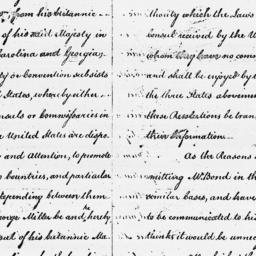 from his britannic
of his said Majesty in
Carolina and Georgia;
ty or Convention subsists
States, whereby either
nsuls or Commissaries in
e United States are dispo
and Attention, to promote
o Countries, and particular
depending between them
eorge Miller be and he hereby
sul of his britannic Ma
thority which the Laws
Consul received by the U
whom they have no comm
and shall be enjoyed by t
the three States abovemen
these Resolutions be tran
their Information
As the Reasons
mitting Mr Bond in the
similar cases, and have
to be communicated to his
thinks it would be unnec